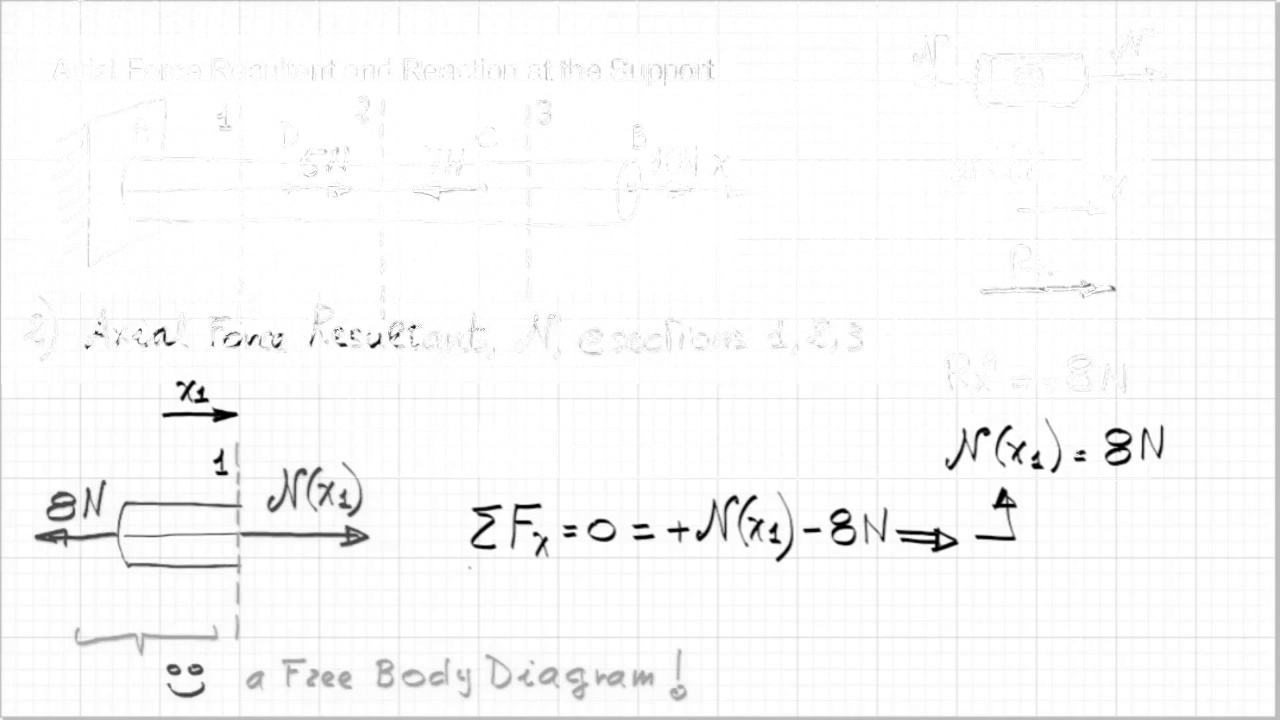 Axial Force Resultant and Reaction at the Support
N N
1 2 3
A D C B
5N 7N 10N x
2) Axial Force Resultant, N, @ sections 1, 2, 3
Rx^A = -8N
x1
1
8N N(x1)
N(x1) = 8N
ΣFx = 0 = +N(x1) - 8N ⇒
a Free Body Diagram!